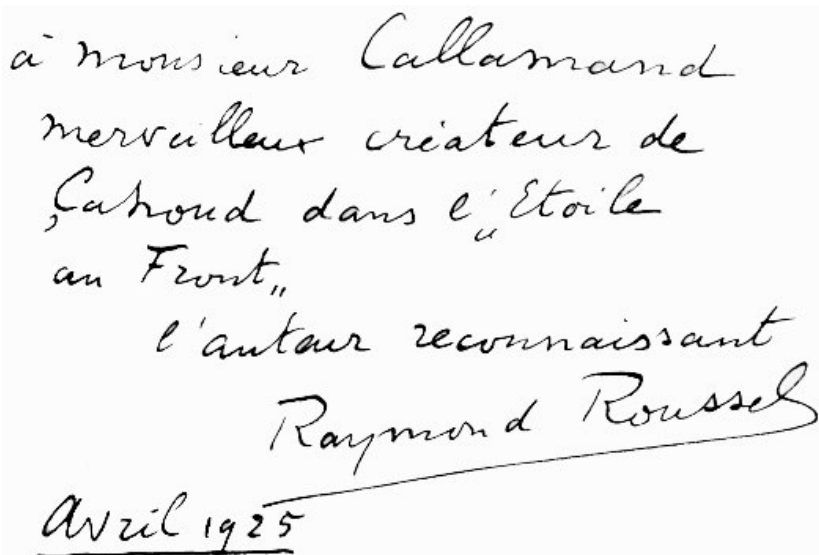 à monsieur Callamand
merveilleux créateur de
Çahoud dans l'"Etoile
au Front"
l'auteur reconnaissant
Raymond Roussel
Avril 1925